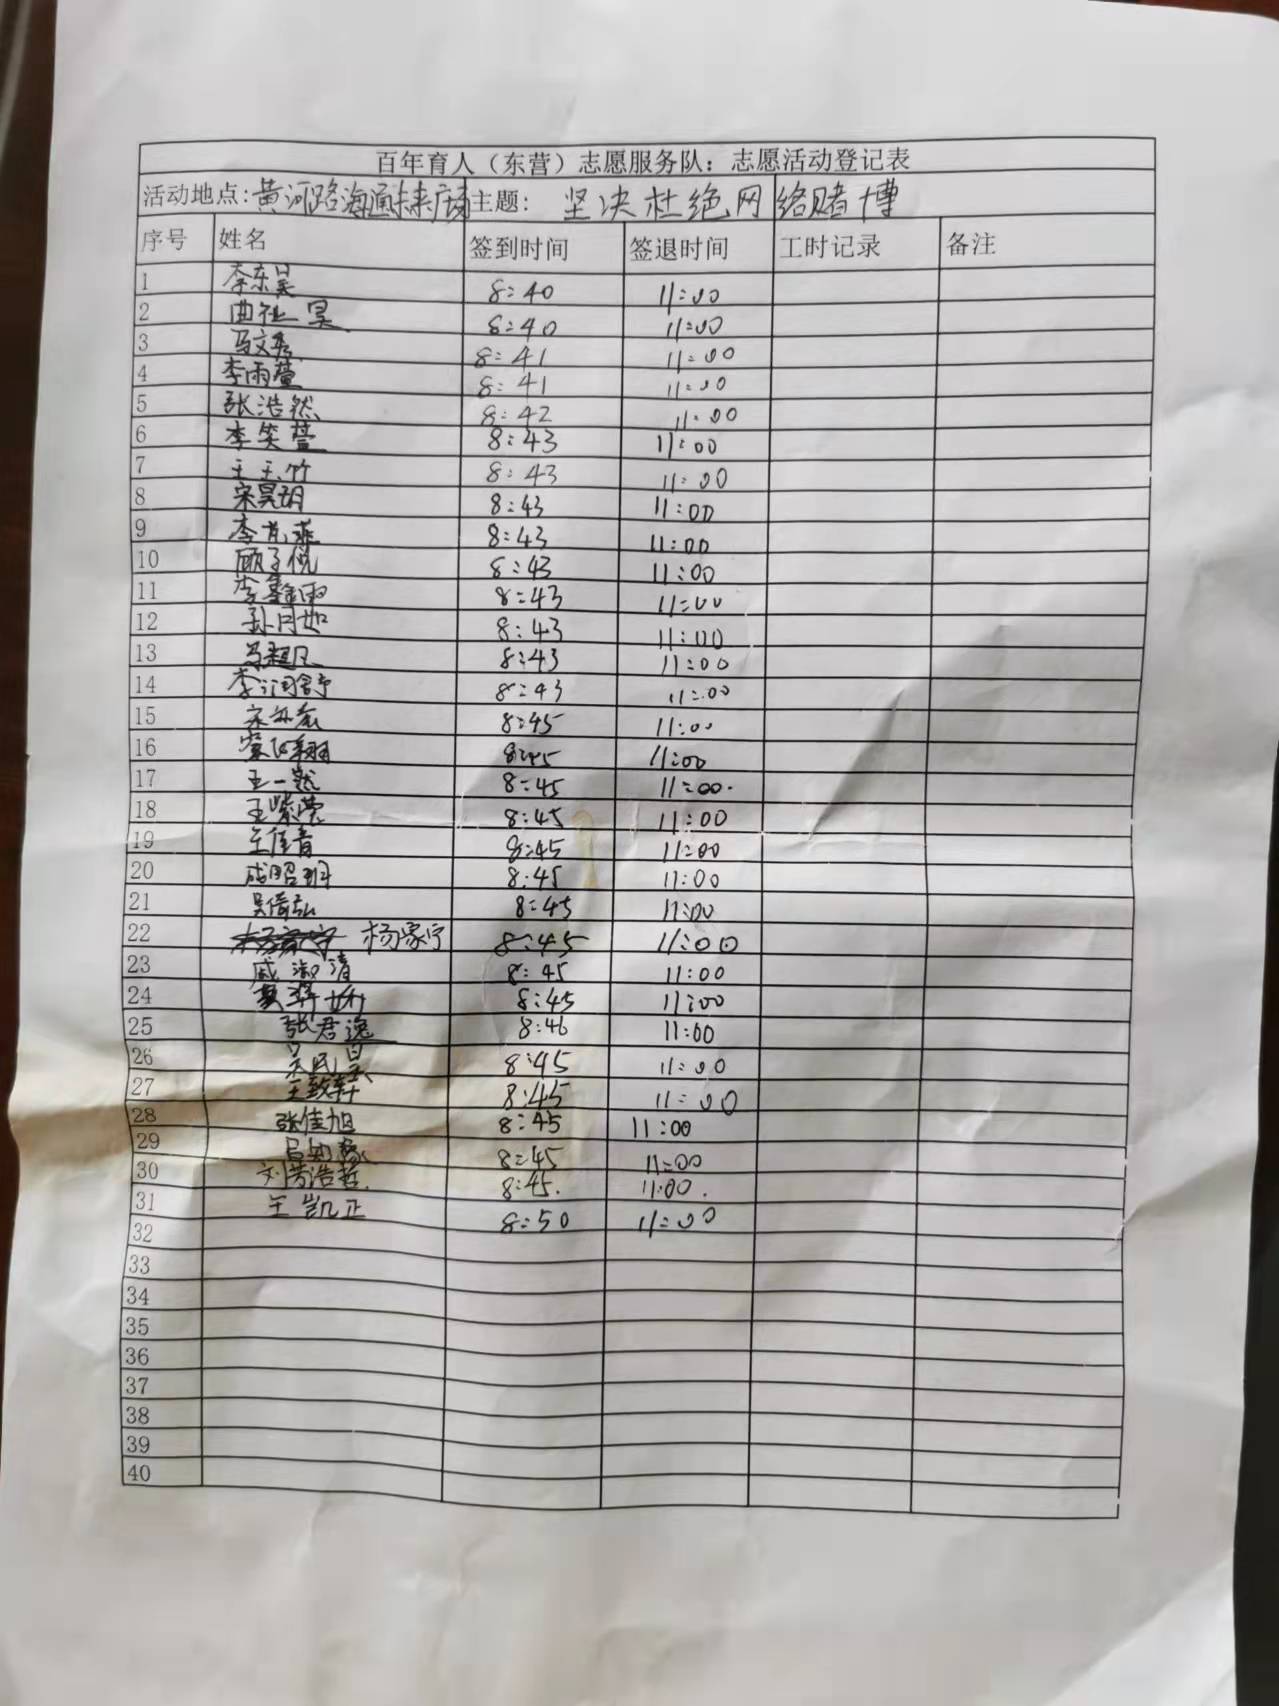 百年育人（东营）志愿服务队：志愿活动登记表
活动地点：黄河路海通未来广场 主题：坚决杜绝网络赌博
序号 姓名 签到时间 签退时间 工时记录 备注
1 李东昊 8:40 11:00
2 曲祉昊 8:40 11:00
3 冯文秀 8:41 11:00
4 李雨萱 8:41 11:00
5 张浩然 8:42 11:00
6 李笑萱 8:43 11:00
7 王玉竹 8:43 11:00
8 宋昊玥 8:43 11:00
9 8:43 11:00
10 顾子倪 8:43 11:00
11 8:43 11:00
12 孙月如 8:43 11:00
13 马超凡 8:43 11:00
14 李润舒 8:43 11:00
15 8:45 11:00
16 8:45 11:00
17 王一然 8:45 11:00
18 王紫莹 8:45 11:00
19 王佳音 8:45 11:00
20 成昭玥 8:45 11:00
21 吴倩弘 8:45 11:00
22 杨家宁 8:45 11:00
23 戚淑清 8:45 11:00
24 8:45 11:00
25 张君逸 8:46 11:00
26 吴民昊 8:45 11:00
27 王致轩 8:45 11:00
28 张佳旭 8:45 11:00
29 8:45 11:00
30 刘芳浩哲 8:45 11:00
31 王凯正 8:50 11:00
32
33
34
35
36
37
38
39
40